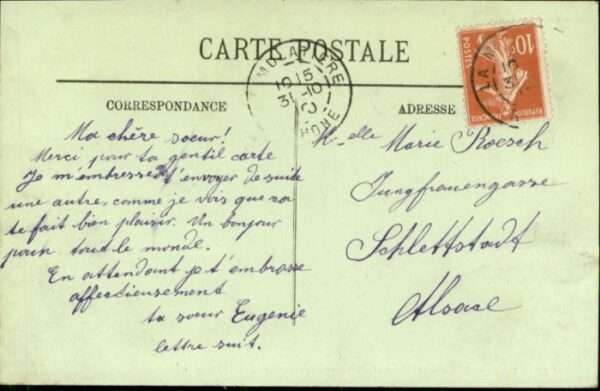 CARTE POSTALE
LA MULATIERE
1015
31-10
RHONE
10c
POSTES
CORRESPONDANCE
ADRESSE
Ma chère soeur!
Merci pour ta gentil carte
Je m'embresse d t'envoyer de suite
une autre, comme je vois que ça
te fait bien plaisir. Un bonjour
pour tout le monde.
En attendant je t'embrasse
affectieusement
ta soeur Eugenie
lettre suit.
Melle Marie Roesch
Jungfrauengasse
Schlettstadt
Alsace